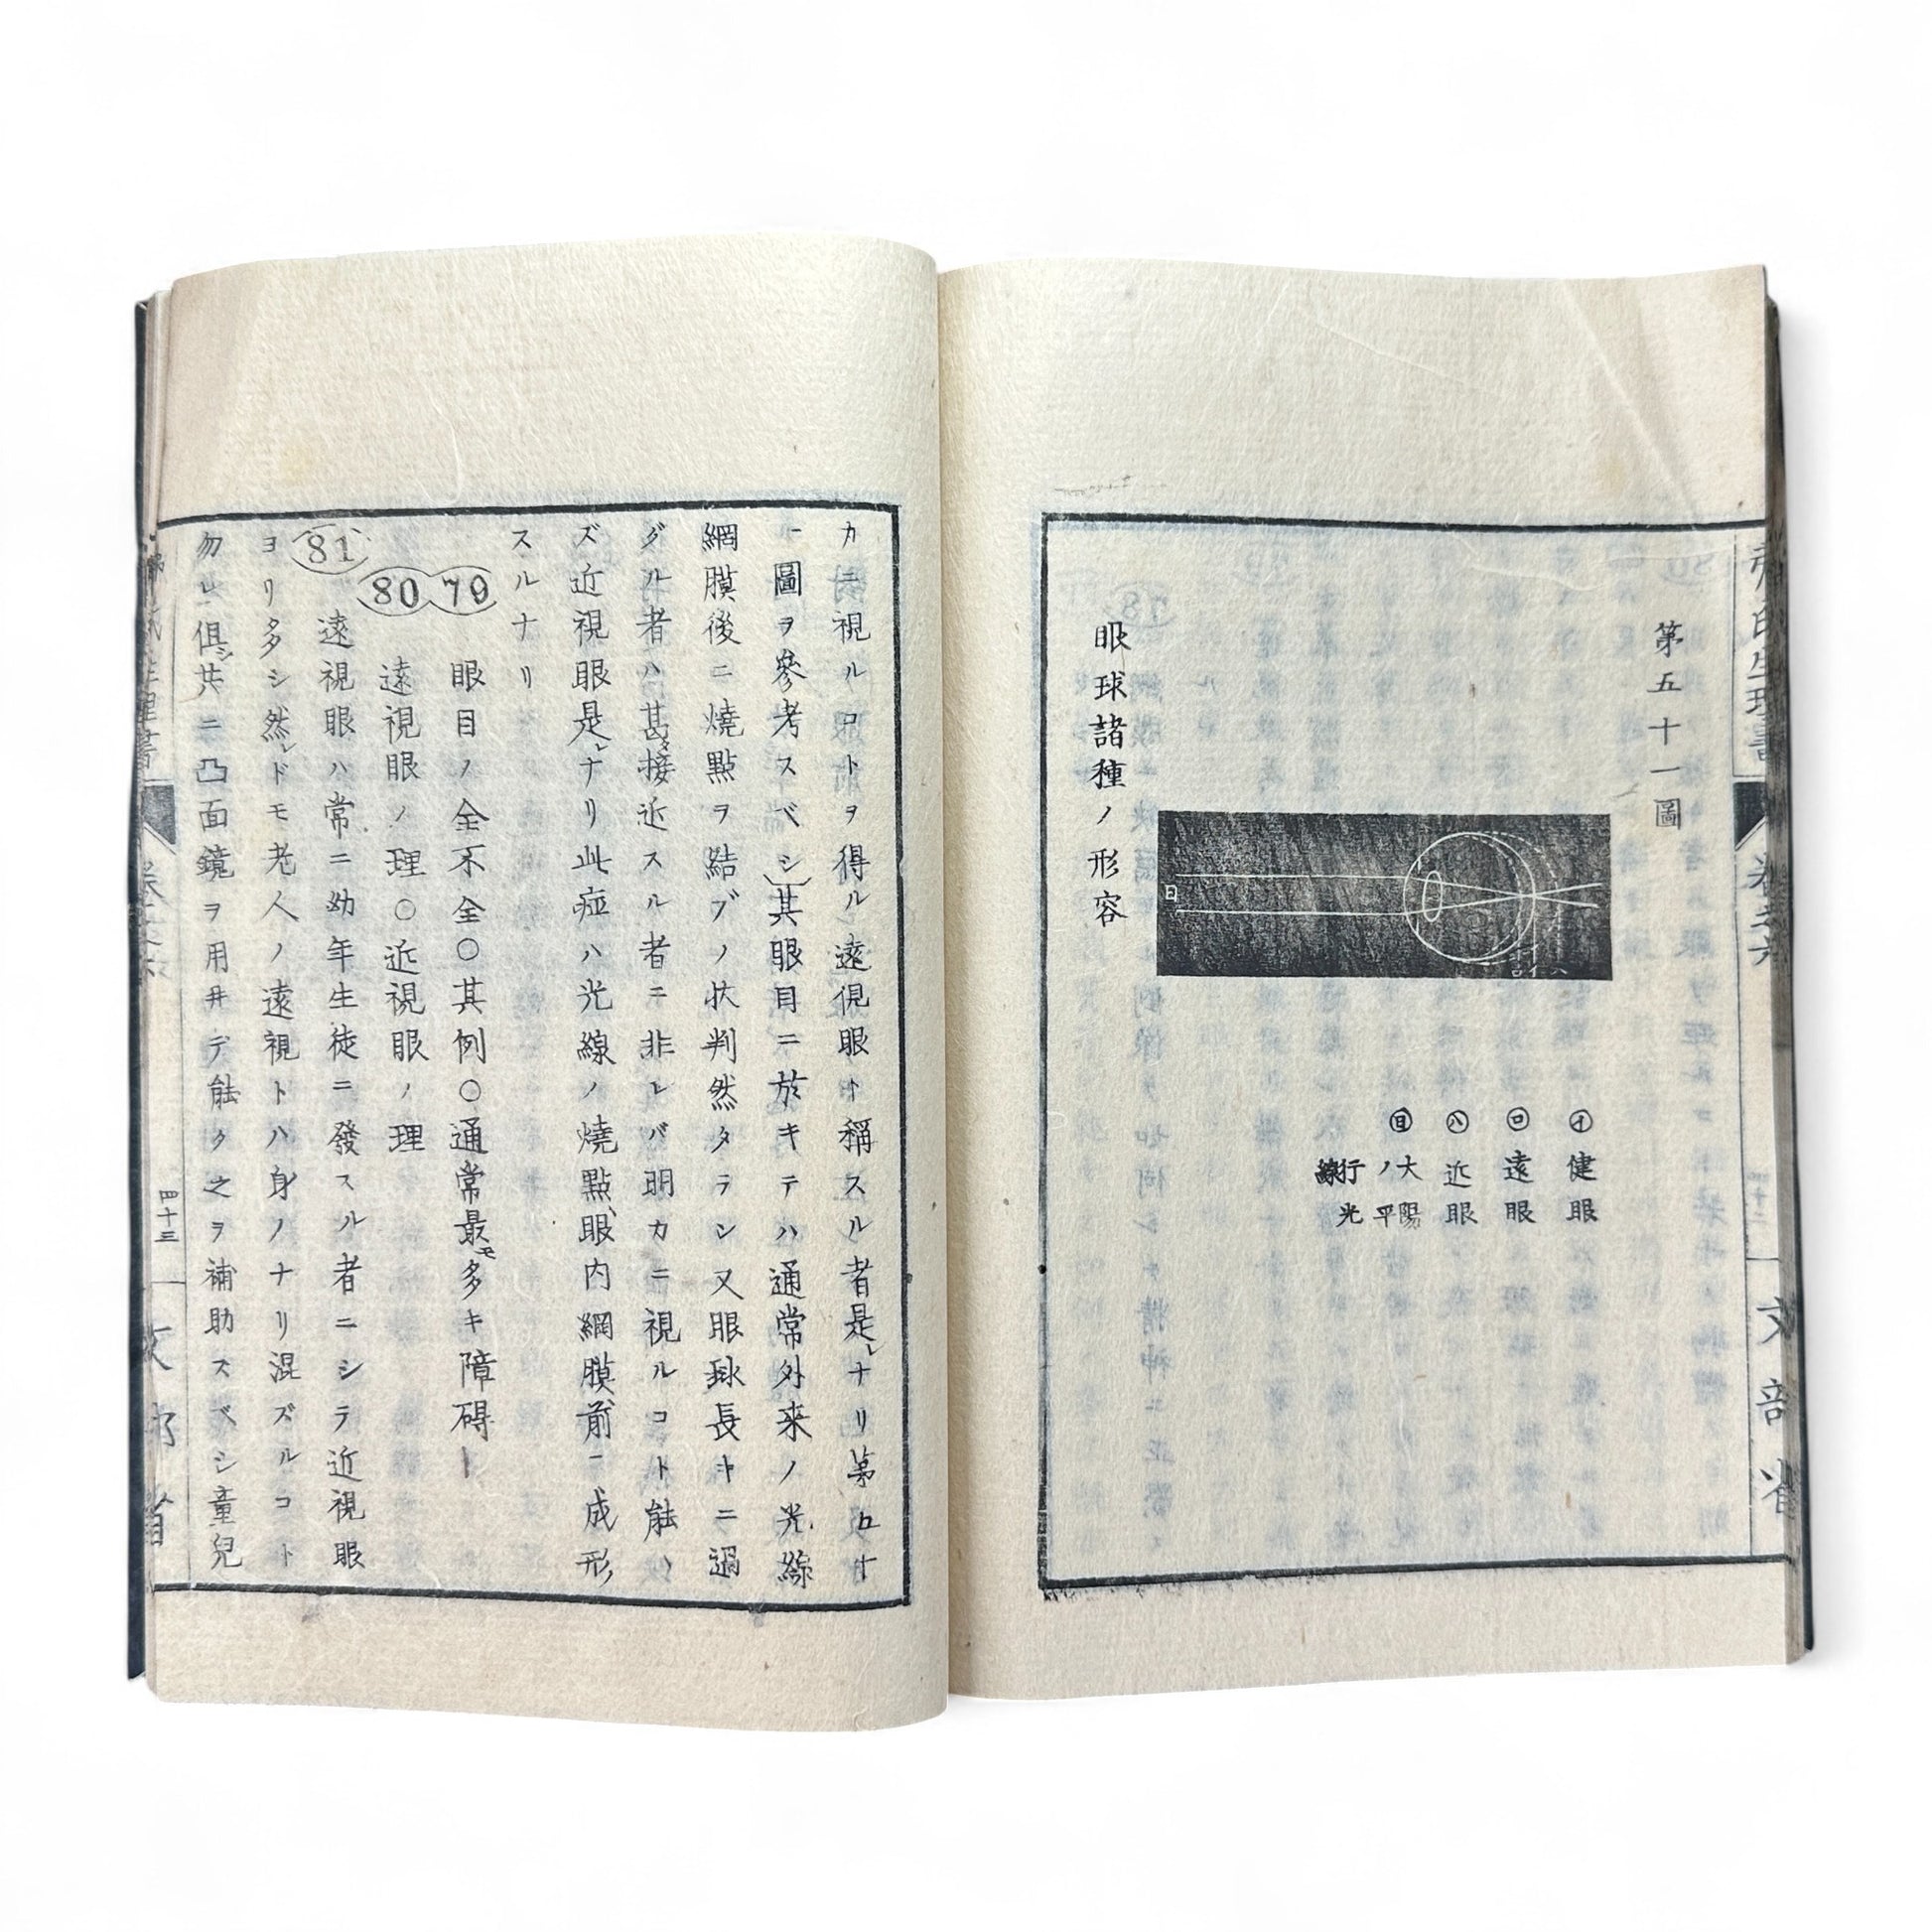 第五十一圖
日
㋑健眼
㋺遠眼
㋩近眼
㊐大陽
ノ平
行光
線
眼球諸種ノ形容
カニ視ルヿトヲ得ル遠視眼ト稱スル者是レナリ第五十
一圖ヲ參考スベシ其眼目ニ於キテハ通常外来ノ光線
網膜後ニ燒點ヲ結ブノ状判然タラン又眼球長キニ過
グル者ハ甚タ接近スル者ニ非レバ明カニ視ルコト能ハ
ズ近視眼是レナリ此症ハ光線ノ燒點眼内網膜前ニ成形
スルナリ
79 眼目ノ全不全〇其例〇通常最モ多キ障碍
80 遠視眼ノ理〇近視眼ノ理
81 遠視眼ハ常ニ幼年生徒ニ發スル者ニシテ近視眼
ヨリ多シ然レドモ老人ノ遠視トハ身ノナリ混ズルコト
勿レ俱シ共ニ凸面鏡ヲ用井テ能ク之ヲ補助スベシ童兒
四十三
文部省
文部省